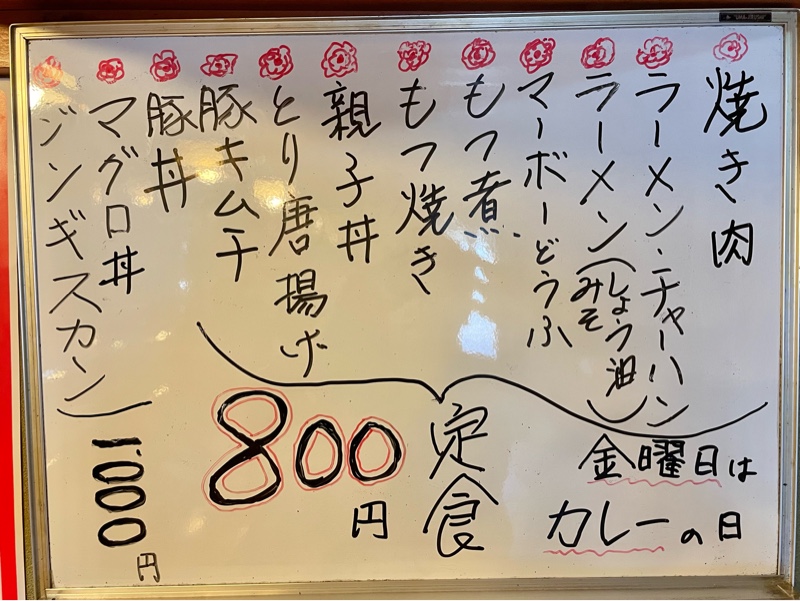 焼き肉
ラーメン・チャーハン
ラーメン(しょう油
みそ)
マーボーどうふ
もつ煮
もつ焼き
親子丼
とり唐揚げ
豚キムチ
豚丼
マグロ丼
ジンギスカン
定食
800円
1.000円
金曜日は
カレーの日